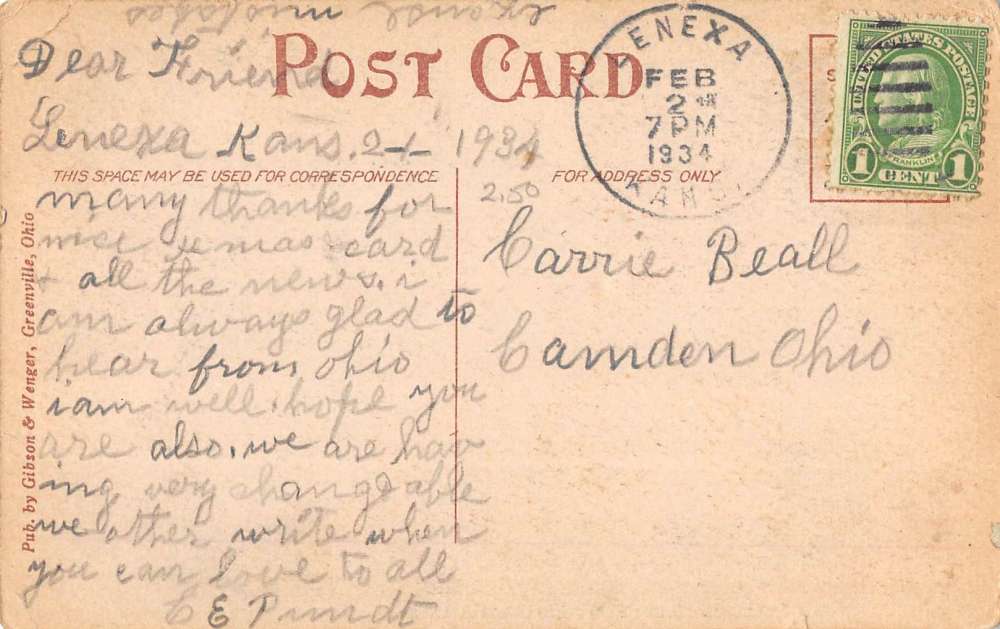 excuse mistakes
Dear Friend
POST CARD
LENEXA
FEB
2
7 PM
1934
KANS.
UNITED STATES POSTAGE
FRANKLIN
1 CENT 1
Lenexa Kans. 2-1- 1934
THIS SPACE MAY BE USED FOR CORRESPONDENCE
FOR ADDRESS ONLY
2.50
many thanks for
nice xmas card
+ all the news. i
am always glad to
hear from ohio
i am well. hope you
are also. we are hav
ing very changeable
we other write when
you can love to all
C E Pundt
Carrie Beall
Camden Ohio
Pub. by Gibson & Wenger, Greenville, Ohio